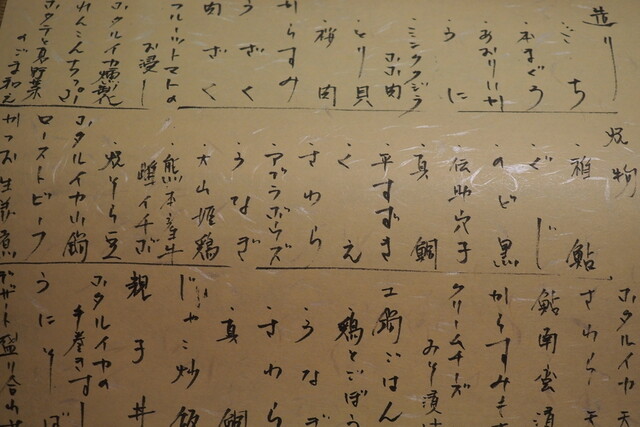 造り
・こち
・本まぐろ
・あおりいか
・うに
・ミンククジラ
ホホ肉
・とり貝
・桜肉
からすみ
うざく
肉ざく
フルーツトマトの
お浸し
ホタルイカ燻製
れんこんちっぷ
ホタテと夏野菜
のごま和え
焼物
・稚鮎
・ぐじ
・のど黒
・伝助穴子
・真鯛
・平すずき
・くえ
・さわら
・アブラボウズ
・うなぎ
・大山地鶏
・熊本産牛
雌イチボ
焼そら豆
ホタルイカ小鍋
ローストビーフ
かつお生姜煮
ホタルイカ天
さわら天
鮎南蛮漬
からすみそ
クリームチーズ
みそ漬け
土鍋ごはん
・鶏とごぼう
・うなぎ
・さわら
・真鯛
じゃこ炒飯
親子丼
ホタルイカの
手巻きすし
うにそば
デザート盛り合わせ